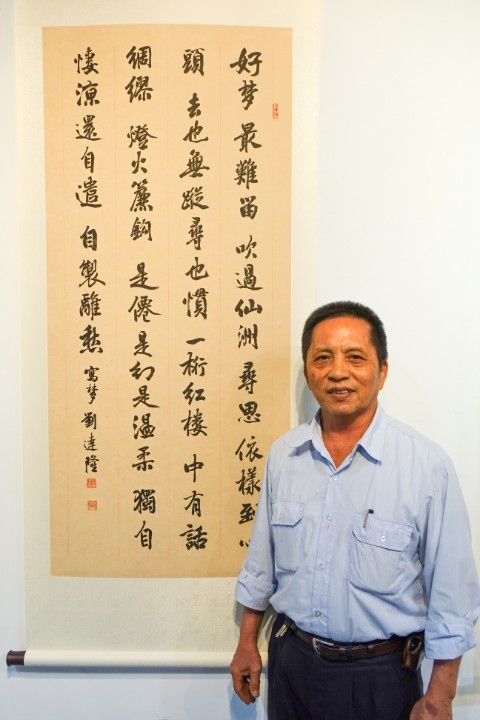 好梦最難留吹過仙洲尋思依樣到心
頭去也無蹤尋也慣一桁红楼中有話
綢繆燈火簾鉤是僊是幻是温柔獨自
悽涼還自遣自製離愁寫梦劉達隆